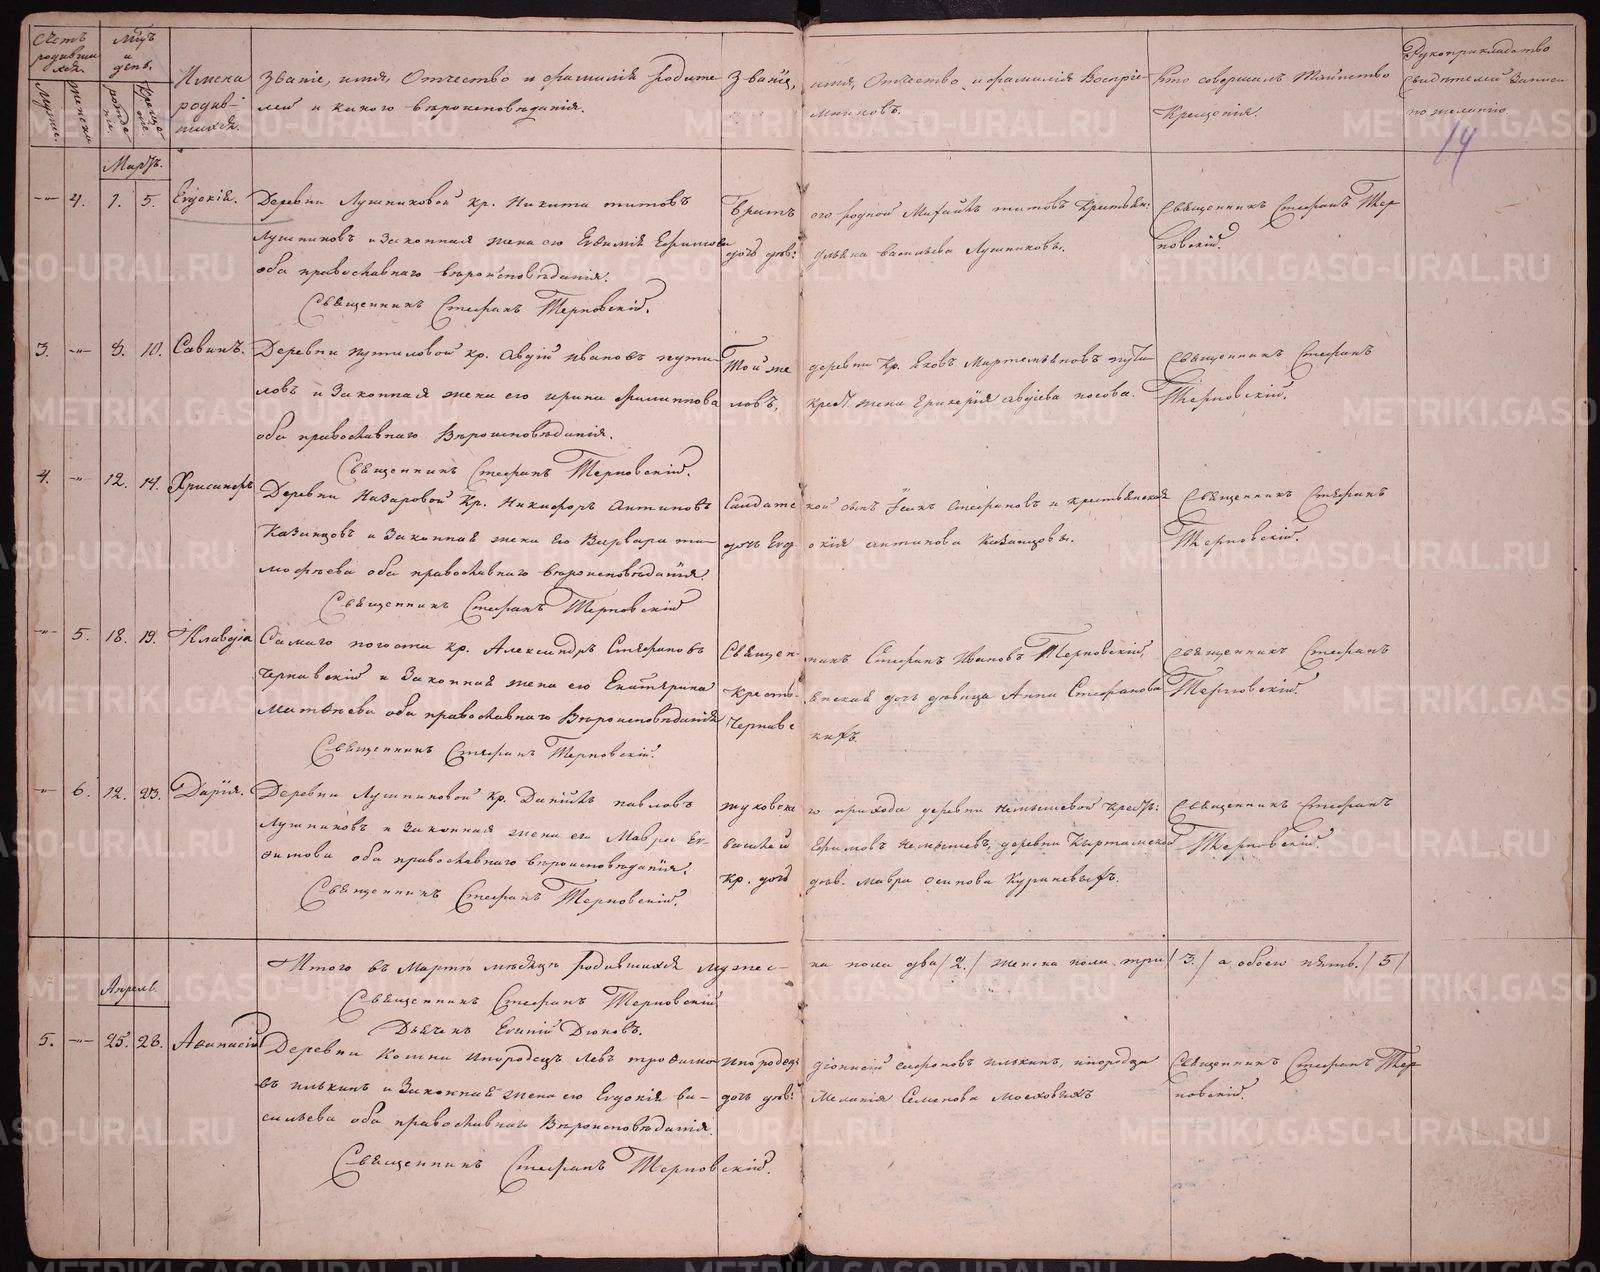 Счетъ родивших ся.
Мцъ и день.
Имена родив- шихся.
Званіе, имя, Отчество и фамилія Родите лей и какого вѣроисповѣданія.
Званіе, имя, Отчество и фамилія Воспріе- мниковъ.
Кто совершалъ Таинство Крещенія.
Рукоприкладство свидѣтелей записи по желанію.
14
Мартъ.
4. 1. 5. Евдокія.
Деревни Лушниковой кр. Никита титовъ
Лушниковъ и Законная жена его Евдокія Ефимова
оба православнаго вѣроисповѣданія.
Священникъ Стефанъ Терновскій.
Братъ его родной Михаилъ титовъ Крестьян:
дочь дѣв: васильева Лушниковы.
Священникъ Стефанъ Тер
новскій.
3. 8. 10. Савинъ.
Деревни путиловой кр. Авдій Ивановъ пути
ловъ и Законная жена его ирина филиппова
оба православнаго Вѣроисповѣданія.
Священникъ Стефанъ Терновскій.
Той же деревни Кр. Яковъ Мартемьяновъ пути
ловъ, Крест. жена авдіева носова.
Священникъ Стефанъ
Терновскій.
4. 12. 14. Хрисанфъ
Деревни Назаровой Кр. Никифоръ антиповъ
Казанцовъ и Законная жена Его Варвара ти-
мофѣева оба православнаго вѣроисповѣданія.
Священникъ Стефанъ Терновскій
Салдатской сынъ Стефановъ и крестьянская
дочь Евдокія антипова Казанцовы.
Священникъ Стефанъ
Терновскій.
5. 18. 19. Клавдіа
Самаго погоста кр. Александръ Стефановъ
Чернавскій и Законная жена его Екатерина
Матвѣева оба православнаго Вѣроисповѣданія
Священникъ Стефанъ Терновскій.
Священникъ Стефанъ Ивановъ Терновскій,
Крестьянская дочь дѣвица Анна Стефанова
Чернавскихъ.
Священникъ Стефанъ
Терновскій.
6. 12. 23. Дарія.
Деревни Лушниковой Кр. Даніилъ павловъ
Лушниковъ и Законная жена его Мавра Ев
фимова оба православнаго вѣроисповѣданія.
Священникъ Стефанъ Терновскій.
жуковскаго прихода деревни Немышевой Крест:
василей Ефимовъ Немышевъ, деревни Кыртамской
Кр. дочь дѣв. мавра осипова Куриневыхъ.
Священникъ Стефанъ
Терновскій.
Итого въ Мартѣ мѣсяцѣ родившихся мужес-ка пола два /2./ женска пола три /3./ а обоего пять. /5/
Священникъ Стефанъ Терновскій
Дьячекъ Дюковъ.
Апрель.
5. 25. 28. Афанасій
Деревни инородецъ Левъ трофимо
въ илькинъ и Законная жена его Евдокія ва-
сильева оба православнаго Вѣроисповѣданія.
Священникъ Стефанъ Терновскій.
Инородецъ діонисій сафроновъ илькинъ, инородца
дочь дѣв: Меланія Семенова Московыхъ
Священникъ Стефанъ Тер
новскій.
METRIKI.GASO-URAL.RU